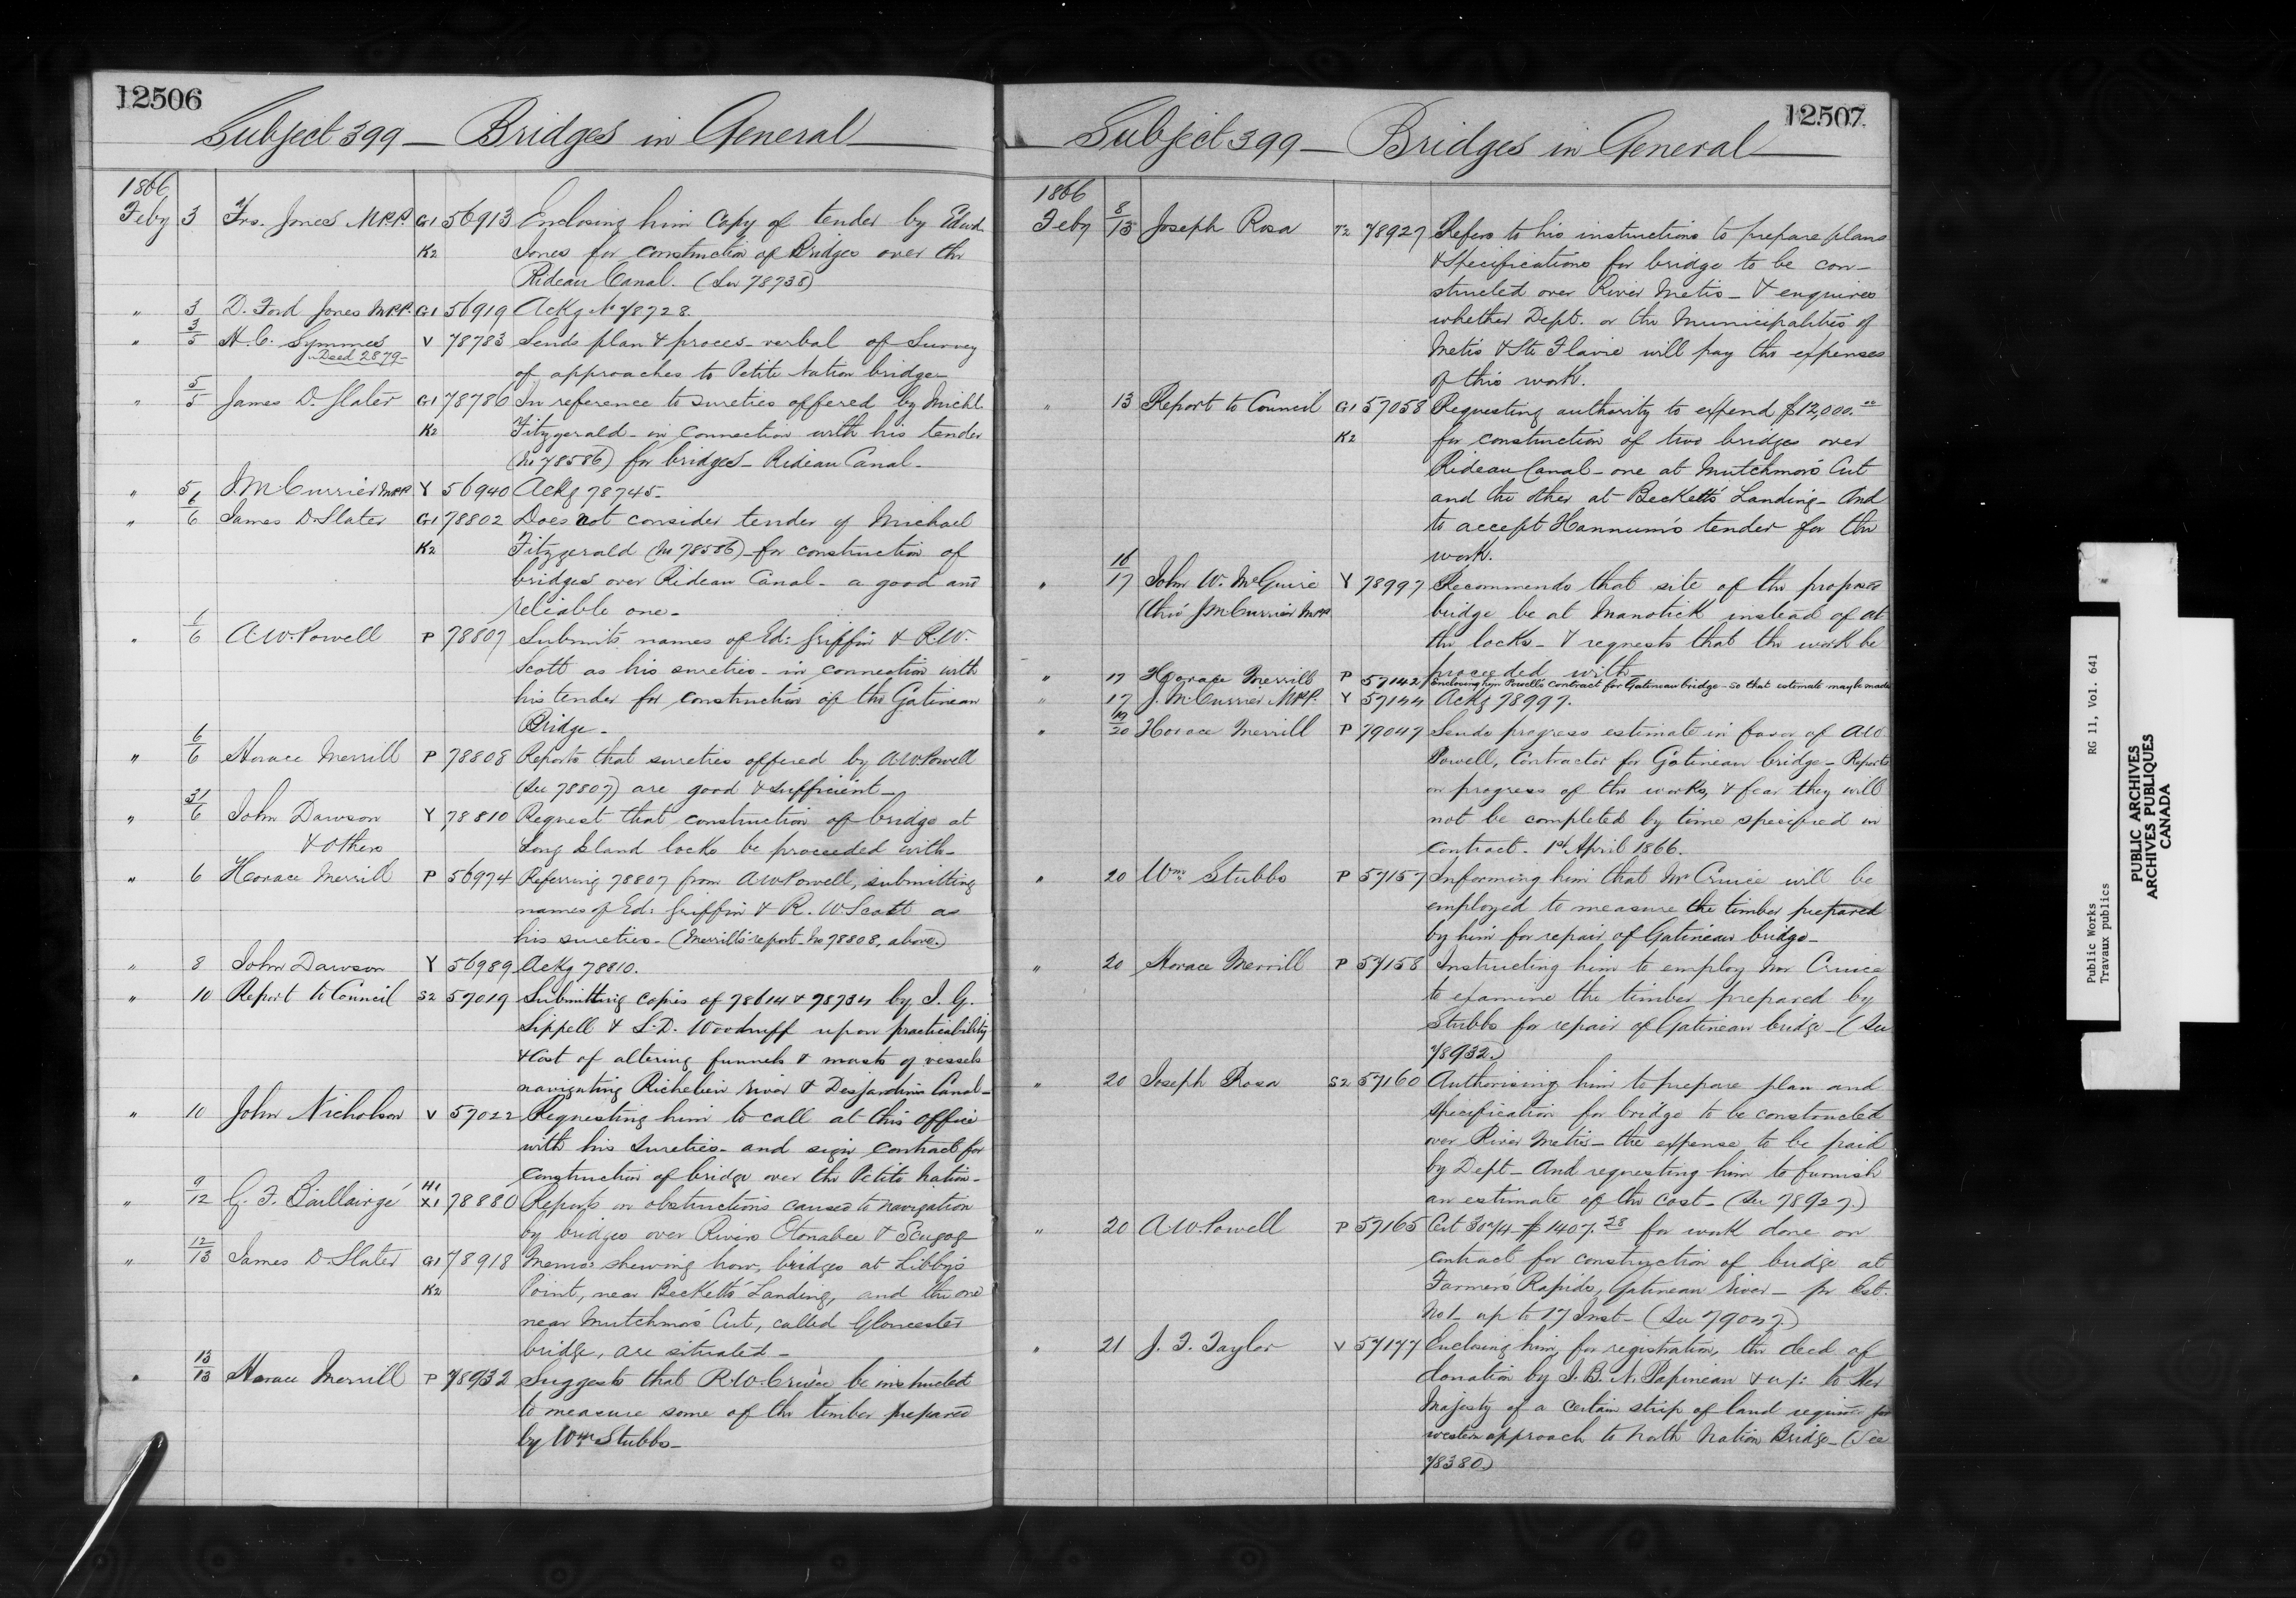 12506
Subject 399 — Bridges in General
1866
Feby 3 Frs. Jones M.P.P. G1 56913 Enclosing him Copy of tender by Edwd.
K2 Jones for construction of Bridges over the
Rideau Canal. (See 78738)
" 3 D. Ford Jones M.P.P. G1 56919 Ackg No 78728.
" 3/5 H. C. Symmes V 78783 Sends plan & proces-verbal of Survey
Deed 2879
of approaches to Petite Nation bridge
" 5/5 James D. Slater G1 78786 In reference to sureties offered by Michl.
K2 Fitzgerald - in connection with his tender
(No 78586) for bridges - Rideau Canal -
" 5/6 J. M. Currier M.P.P. Y 56940 Ackg 78745 -
" 6 James D. Slater G1 78802 Does not consider tender of Michael
K2 Fitzgerald (No 78586) - for construction of
bridges over Rideau Canal - a good and
reliable one -
" 6 A. W. Powell P 78807 Submits names of Ed: Griffin & R. W.
Scott as his sureties - in connection with
his tender for construction of the Gatineau
Bridge -
" 6/6 Horace Merrill P 78808 Reports that sureties offered by A. W. Powell
(See 78807) are good & sufficient -
" 31/6 John Dawson Y 78810 Request that construction of bridge at
& others Long Island locks be proceeded with -
" 6 Horace Merrill P 56974 Referring 78807 from A. W. Powell, submitting
names of Ed: Griffin & R. W. Scott as
his sureties - (Merrill's report - No 78808, above.)
" 8 John Dawson Y 56989 Ackg 78810.
" 10 Report to Council S2 57019 Submitting copies of 78614 & 78734 by J. G.
Sippell & S. D. Woodruff upon practicability
& Cost of altering funnels & masts of vessels
navigating Richelieu river & Desjardins Canal -
" 10 John Nicholson V 57022 Requesting him to call at this office
with his Sureties - and sign Contract for
Construction of bridge over the Petite Nation -
H1
" 9/12 G. F. Baillairgé X1 78880 Reports on obstructions caused to navigation
by bridges over Rivers Otonabee & Scugog
" 12/13 James D. Slater G1 78918 Memo: shewing how, bridges at Libby's
K2 Point, near Beckett's Landing, and the one
near Mutchmor's Cut, called Gloucester
bridge, are situated -
" 13/13 Horace Merrill P 78932 Suggests that R. W. Cruice be instructed
to measure some of the timber prepared
by Wm Stubbs -
12507
Subject 399 — Bridges in General
1866
Feby 8/13 Joseph Rosa T2 78927 Refers to his instructions to prepare plans
& Specifications for bridge to be con-
structed over River Metis - & enquires
whether Dept. or the Municipalities of
Metis & Ste Flavie will pay the expenses
of this work.
" 13 Report to Council G1 57058 Requesting authority to expend $12,000.00
K2 for construction of two bridges over
Rideau Canal - one at Mutchmor's Cut
and the other at Beckett's Landing - And
to accept Hannum's tender for the
work.
" 16/17 John W. McGuire Y 78997 Recommends that site of the proposed
(thro' J. M. Currier M.P.P. bridge be at Manotick instead of at
the locks - & requests that the work be
proceeded with -
" 17 Horace Merrill P 57142 Enclosing him Powell's contract for Gatineau bridge - so that estimate may be made
" 17 J. M. Currier M.P.P. Y 57144 Ackg 78997.
" 19/20 Horace Merrill P 79047 Sends progress estimate in favor of A. W.
Powell, Contractor for Gatineau bridge - Reports
on progress of the works, & fear they will
not be completed by time specified in
Contract - 1st April 1866.
" 20 Wm Stubbs P 57157 Informing him that Mr Cruice will be
employed to measure the timber prepared
by him for repair of Gatineau bridge -
" 20 Horace Merrill P 57158 Instructing him to employ Mr Cruice
to examine the timber prepared by
Stubbs for repair of Gatineau bridge - (See
78932.)
" 20 Joseph Rosa S2 57160 Authorising him to prepare plan and
Specification for bridge to be constructed
over River Metis - the expense to be paid
by Dept - And requesting him to furnish
an estimate of the cost - (See 78927.)
" 20 A. W. Powell P 57165 Cert 3074 - $1407.28 for work done on
contract for construction of bridge at
Farmer's Rapids, Gatineau River - pr Est.
No 1 - up to 17 Inst - (See 79047.)
" 21 J. F. Taylor V 57177 Enclosing him, for registration, the deed of
donation by J. B. N. Papineau & ux: to Her
Majesty of a certain strip of land required for
western approach to North Nation Bridge - (See
78380)
Public Works RG 11, Vol. 641
Travaux publics
PUBLIC ARCHIVES
ARCHIVES PUBLIQUES
CANADA